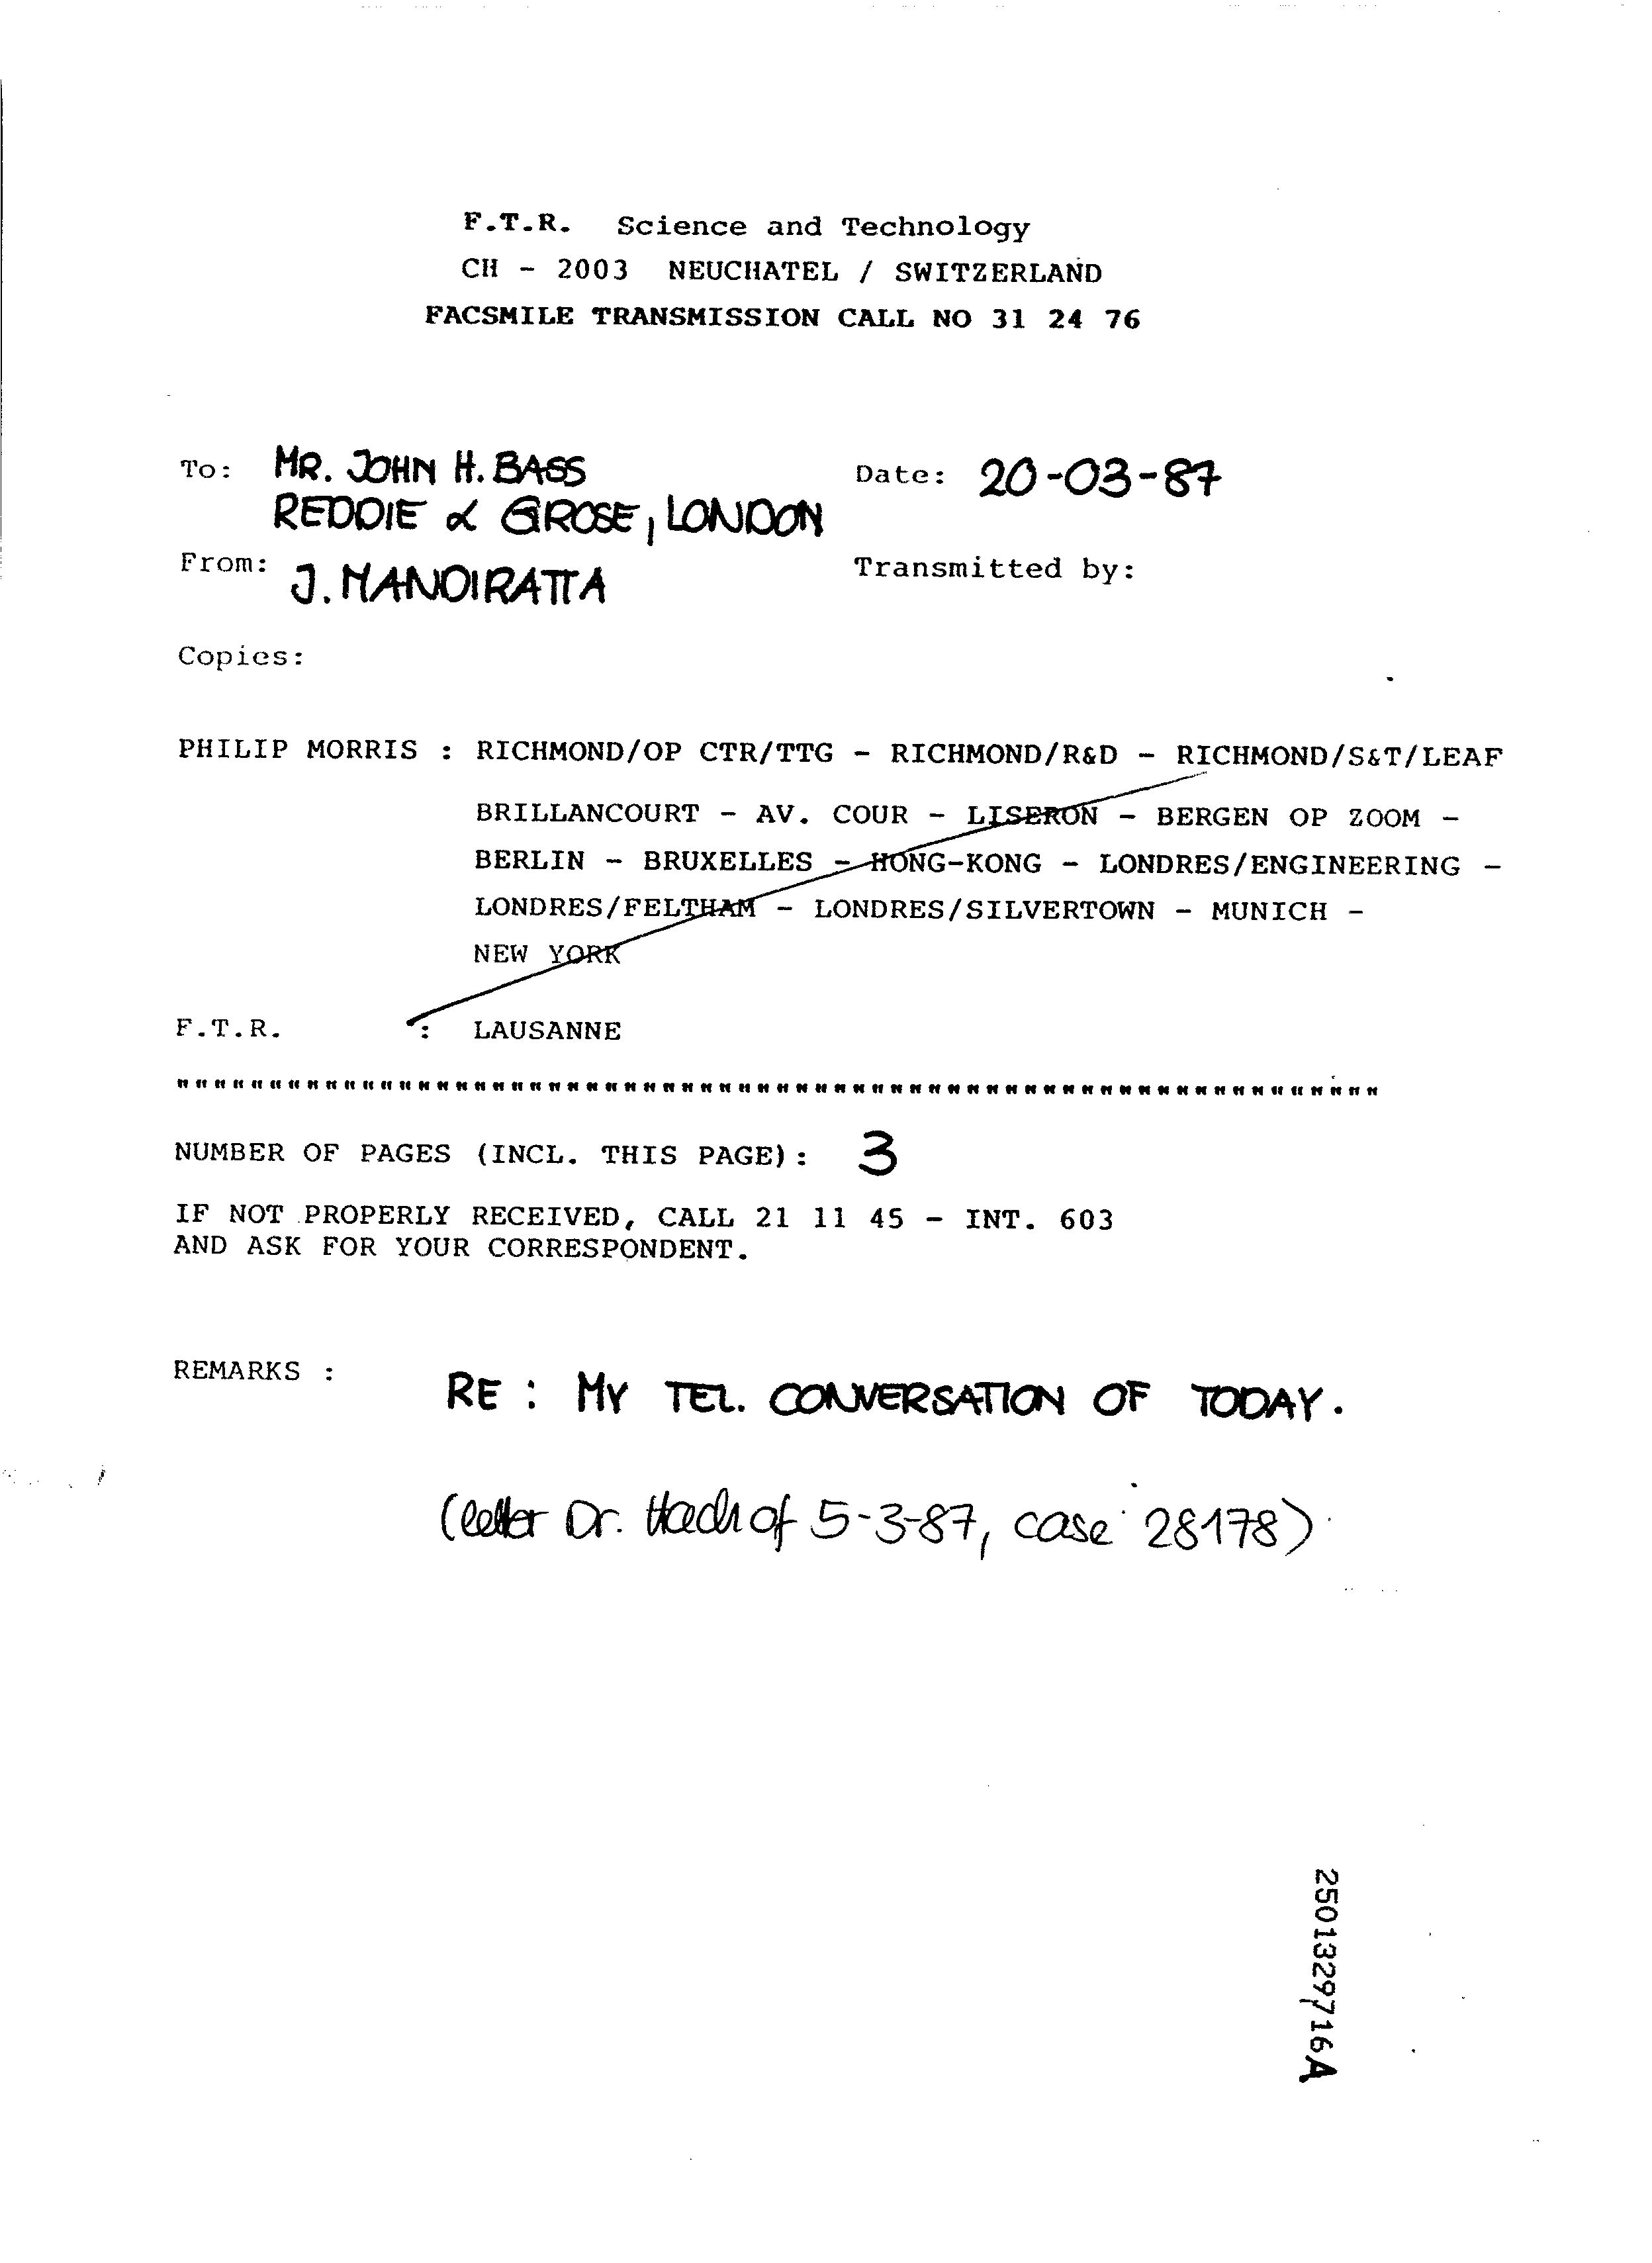 F.T.R. Science and Technology
CH - 2003 NEUCHATEL / SWITZERLAND
FACSMILE TRANSMISSION CALL NO 31 24 76
To: MR. JOHN H. BASS
Date: 20-03-87
REDDIE & GROSE, LONDON
From: J. MANOIRATTA
Transmitted by:
Copies:
PHILIP MORRIS : RICHMOND/OP CTR/TTG - RICHMOND/R&D - RICHMOND/S&T/LEAF
BRILLANCOURT - AV. COUR - LISERON - BERGEN OP ZOOM -
BERLIN - BRUXELLES - HONG-KONG - LONDRES/ENGINEERING -
LONDRES/FELTHAM - LONDRES/SILVERTOWN - MUNICH -
NEW YORK
F.T.R. : LAUSANNE
NUMBER OF PAGES (INCL. THIS PAGE): 3
IF NOT PROPERLY RECEIVED, CALL 21 11 45 - INT. 603
AND ASK FOR YOUR CORRESPONDENT.
REMARKS :
RE : MY TEL. CONVERSATION OF TODAY.
(letter Dr. of 5-3-87, case 28178)
2501329716A